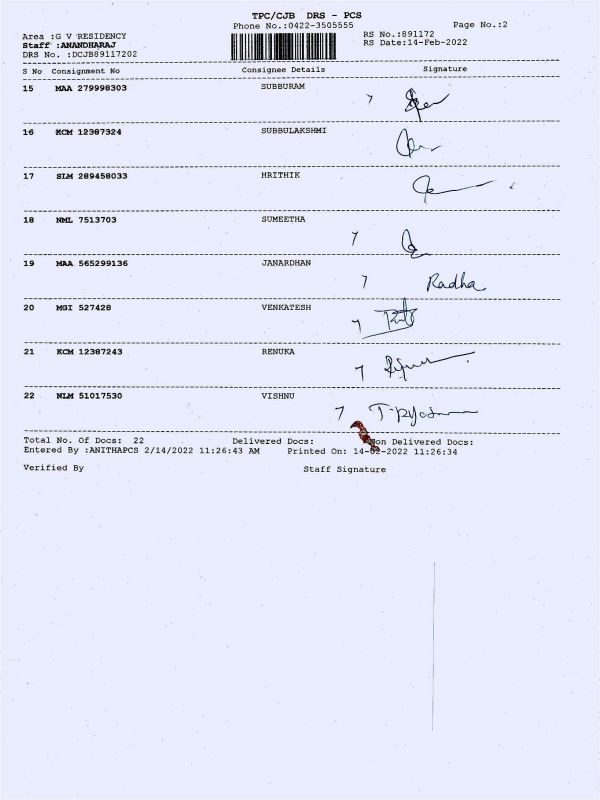 TPC/CJB DRS - PCS
Phone No.:0422-3505555
Page No.:2
Area :G V RESIDENCY
RS No.:891172
Staff :ANANDHARAJ
RS Date:14-Feb-2022
DRS No. :DCJB89117202
S No Consignment No Consignee Details Signature
15 MAA 279998303 SUBBURAM
16 KCM 12387324 SUBBULAKSHMI
17 SLM 289458033 HRITHIK
18 NML 7513703 SUMEETHA
19 MAA 565299136 JANARDHAN Radha
20 MGI 527428 VENKATESH
21 KCM 12387243 RENUKA
22 NLM 51017530 VISHNU
Total No. Of Docs: 22 Delivered Docs: Non Delivered Docs:
Entered By :ANITHAPCS 2/14/2022 11:26:43 AM Printed On: 14-02-2022 11:26:34
Verified By Staff Signature